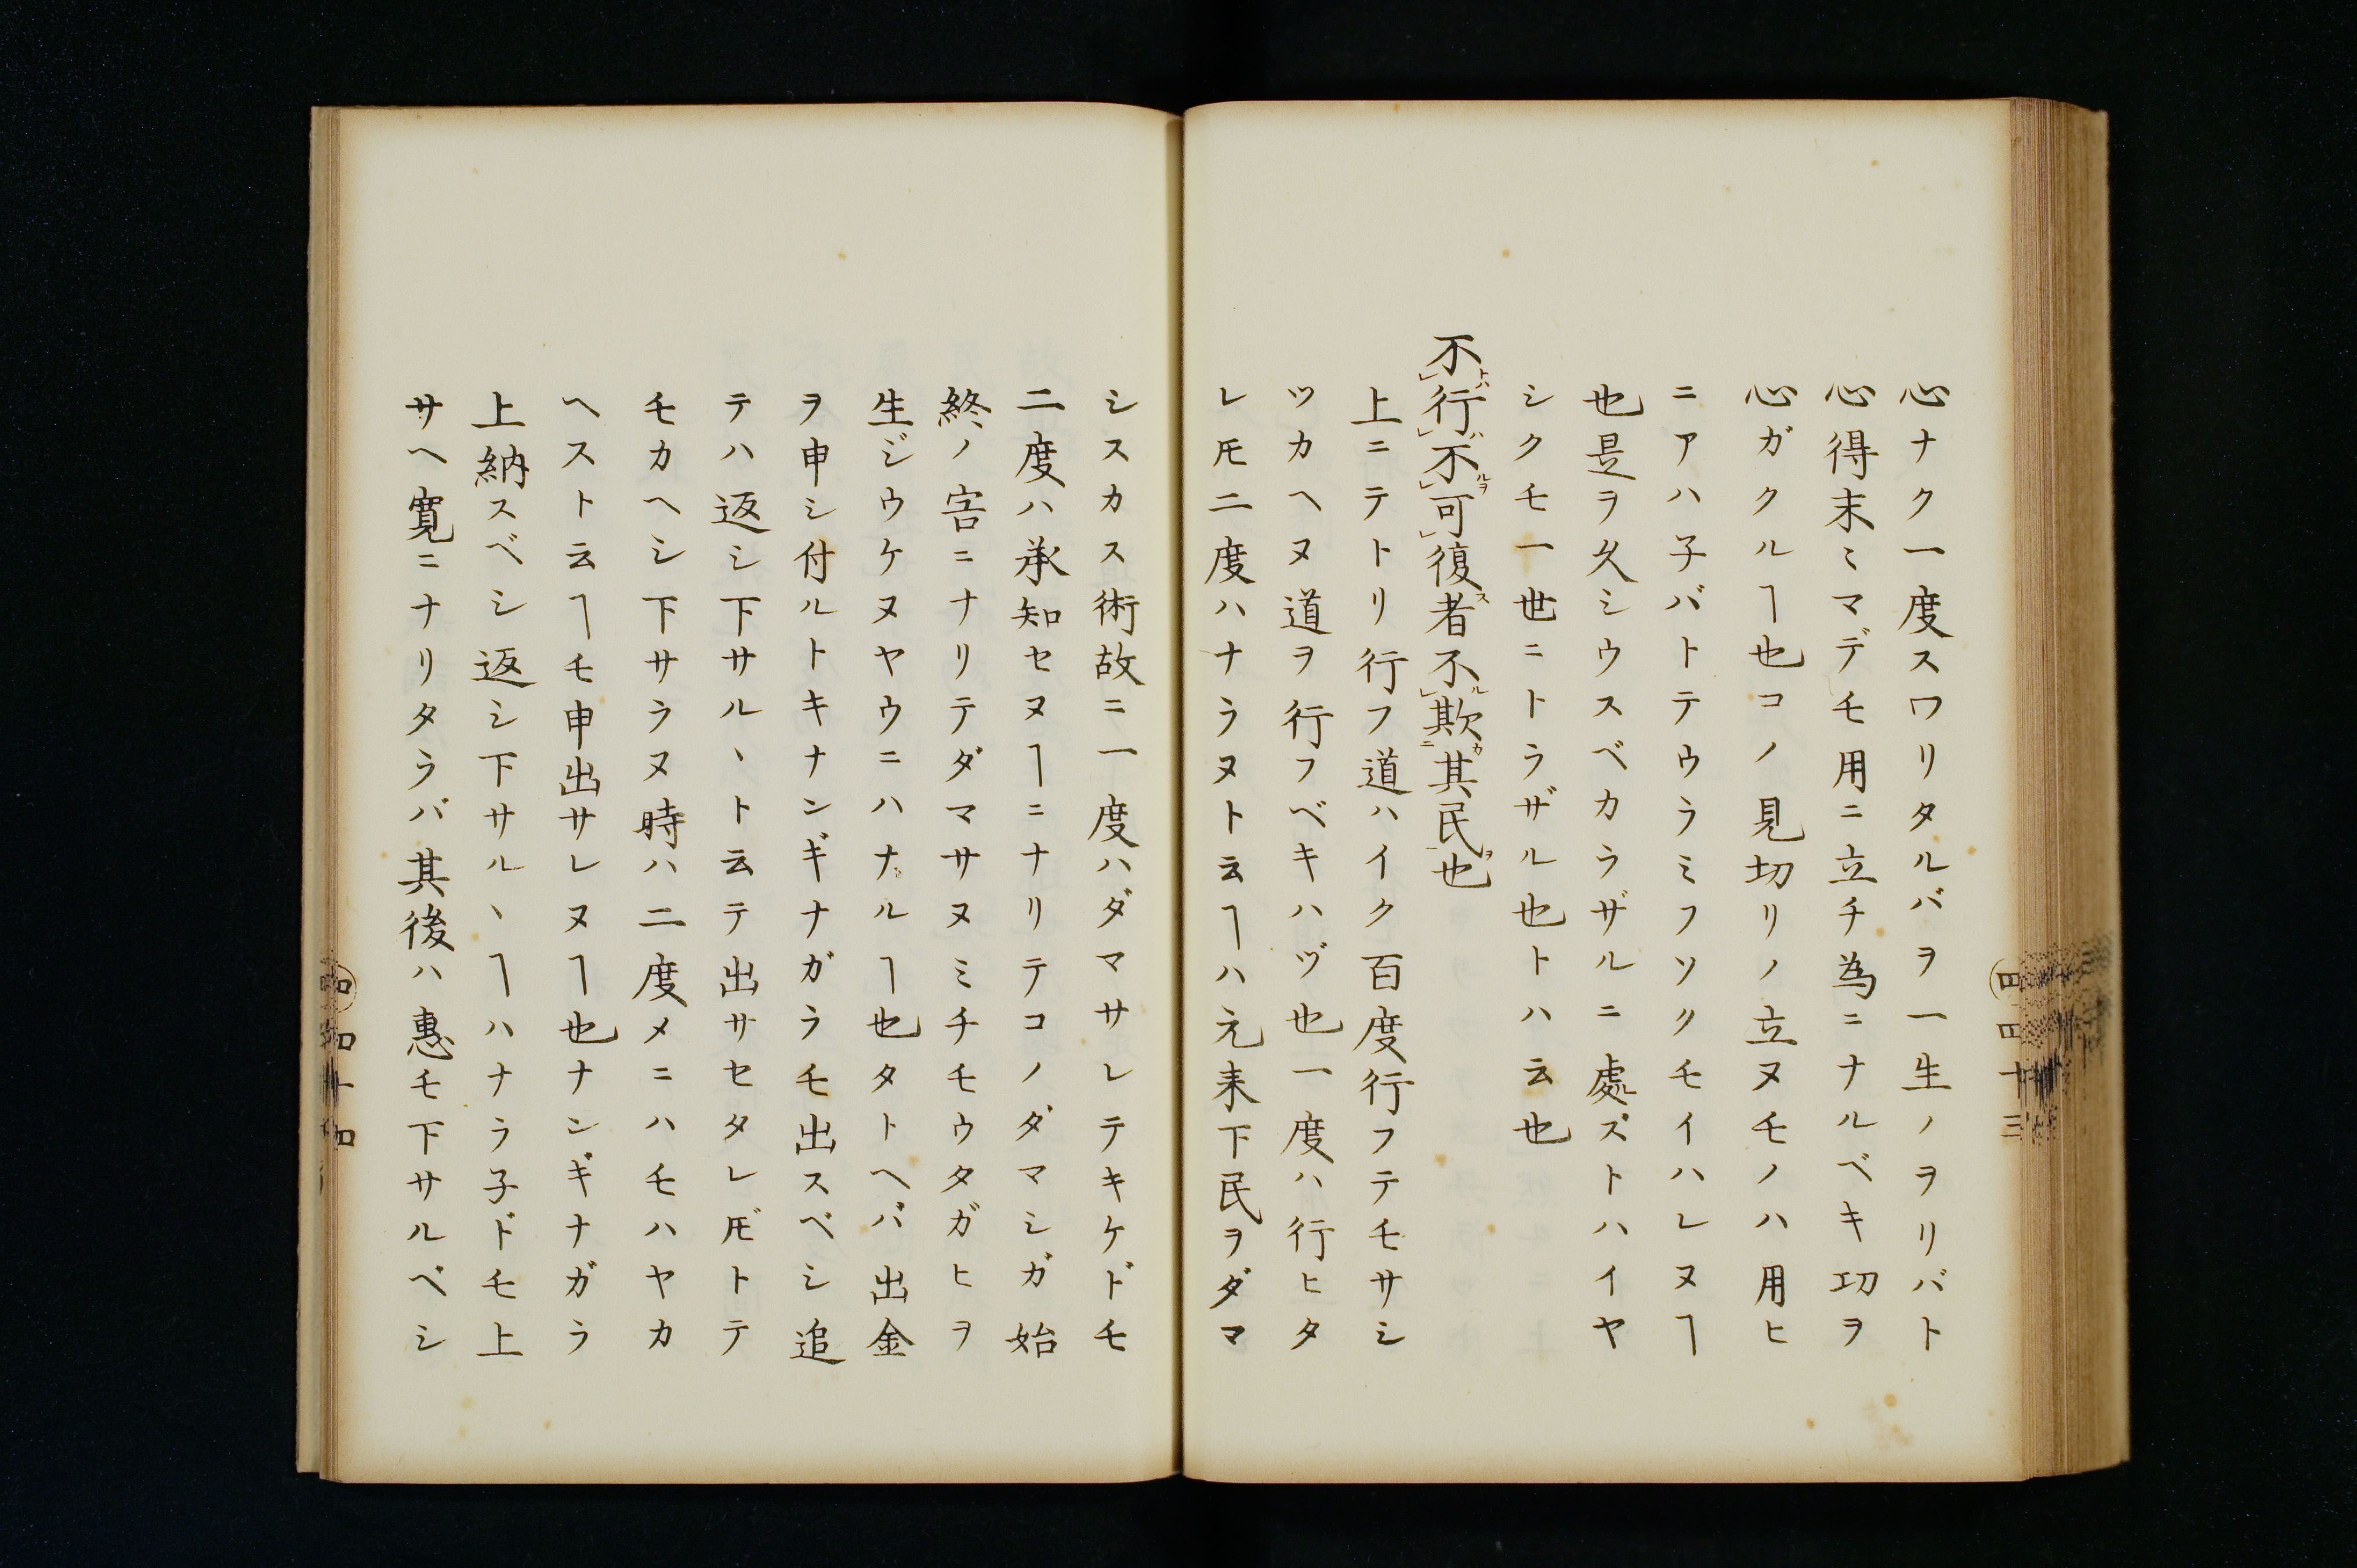 心ナク一度スワリタルバヲ一生ノヲリバト
心得末〻マデモ用ニ立チ為ニナルベキ切ヲ
心ガクルヿ也コノ見切リノ立ヌモノハ用ヒ
ニアハ子バトテウラミフソクモイハレヌヿ
也是ヲ久シウスベカラザルニ處ズトハイヤ
シクモ一世ニトラザル也トハ云也
不行不可復者不欺其民也
上ニテトリ行フ道ハイク百度行フテモサシ
ツカヘヌ道ヲ行フベキハヅ也一度ハ行ヒタ
レ𪜈二度ハナラヌト云ヿハ元来下民ヲダマ
シスカス術故ニ一度ハダマサレテキケドモ
二度ハ承知セヌヿニナリテコノダマシガ始
終ノ害ニナリテダマサヌミチモウタガヒヲ
生ジウケヌヤウニハナルヿ也タトヘバ出金
ヲ申シ付ルトキナンギナガラモ出スベシ追
テハ返シ下サルヽト云テ出サセタレ𪜈トテ
モカヘシ下サラヌ時ハ二度メニハモハヤカ
ヘスト云ヿモ申出サレヌヿ也ナンギナガラ
上納スベシ返シ下サルヽヿハナラ子ドモ上
サヘ寛ニナリタラバ其後ハ惠モ下サルベシ
四 四十三
四 四十四